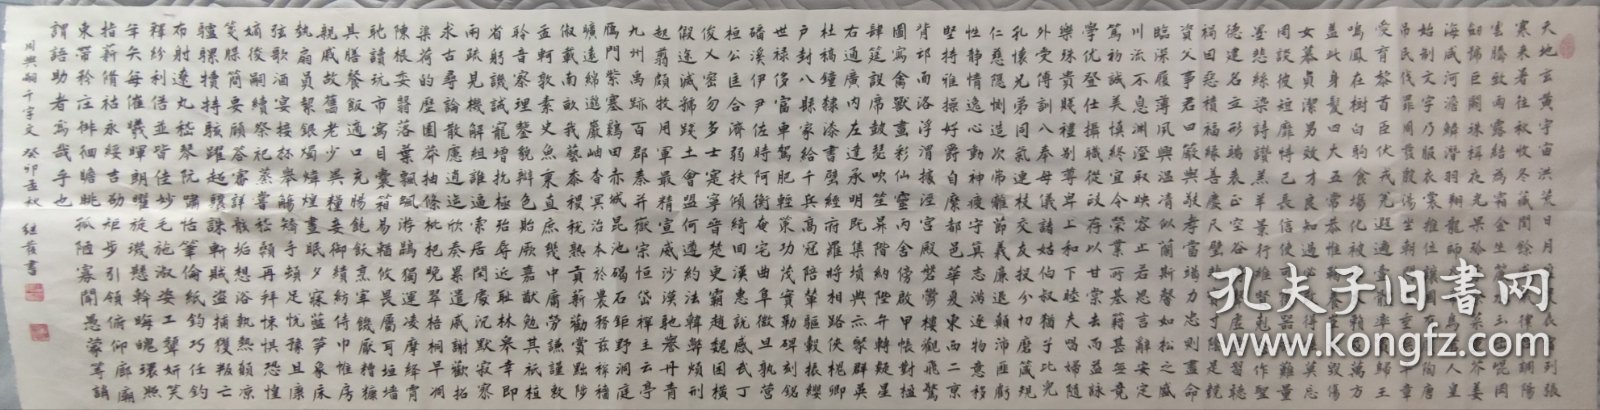 天地玄黄宇宙洪荒日月盈昃辰宿列張
寒来暑往秋收冬藏閏餘成歲律吕調陽
雲騰致雨露結為霜金生麗水玉出崑岡
劍號巨闕珠稱夜光果珍李柰菜重芥姜
海鹹河淡鱗潛羽翔龍師火帝鳥官人皇
始制文字乃服衣裳推位讓國有虞陶唐
弔民伐罪周發殷湯坐朝問道垂拱平章
愛育黎首臣伏戎羌遐邇壹體率賓歸王
鳴鳳在樹白駒食場化被草木賴及萬方
蓋此身髮四大五常恭惟鞠養豈敢毀傷
女慕貞潔男效才良知過必改得能莫忘
罔談彼短靡恃己長信使可覆器欲難量
墨悲絲染詩讚羔羊景行維賢克念作聖
德建名立形端表正空谷傳聲虛堂習聽
禍因惡積福緣善慶尺璧非寶寸陰是競
資父事君曰嚴與敬孝當竭力忠則盡命
臨深履薄夙興溫凊似蘭斯馨如松之盛
川流不息淵澄取映容止若思言辭安定
篤初誠美慎終宜令榮業所基籍甚無竟
學優登仕攝職從政存以甘棠去而益詠
樂殊貴賤禮別尊卑上和下睦夫唱婦隨
外受傅訓入奉母儀諸姑伯叔猶子比兒
孔懷兄弟同氣連枝交友投分切磨箴規
仁慈隱惻造次弗離節義廉退顛沛匪虧
性静情逸心動神疲守真志滿逐物意移
堅持雅操好爵自縻都邑華夏東西二京
背邙面洛浮渭據涇宮殿盤鬱樓觀飛驚
圖寫禽獸畫彩仙靈丙舍傍啟甲帳對楹
肆筵設席鼓瑟吹笙升階納陛弁轉疑星
右通廣內左達承明既集墳典亦聚群英
杜稿鍾隸漆書壁經府羅將相路俠槐卿
戶封八縣家給千兵高冠陪輦驅轂振纓
世祿侈富車駕肥輕策功茂實勒碑刻銘
磻溪伊尹佐時阿衡奄宅曲阜微旦孰營
桓公匡合濟弱扶傾綺回漢惠說感武丁
俊乂密勿多士寔寧晉楚更霸趙魏困橫
假途滅虢踐土會盟何遵約法韓弊煩刑
起翦頗牧用軍最精宣威沙漠馳譽丹青
九州禹跡百郡秦并嶽宗恒岱禪主云亭
雁門紫塞雞田赤城昆池碣石鉅野洞庭
曠遠綿邈巖岫杳冥治本於農務茲稼穡
俶載南畝我藝黍稷稅熟貢新勸賞黜陟
孟軻敦素史魚秉直庶幾中庸勞謙謹敕
聆音察理鑒貌辨色貽厥嘉猷勉其祗植
省躬譏誡寵增抗極殆辱近恥林皋幸即
兩疏見機解組誰逼索居閒處沉默寂寥
求古尋論散慮逍遙欣奏累遣慼謝歡招
渠荷的歷園莽抽條枇杷晚翠梧桐早凋
陳根委翳落葉飄颻游鵾獨運凌摩絳霄
耽讀玩市寓目囊箱易輶攸畏屬耳垣墻
具膳餐飯適口充腸飽飫烹宰饑厭糟糠
親戚故舊老少異糧妾御績紡侍巾帷房
紈扇圓絜銀燭煒煌晝眠夕寐藍筍象床
弦歌酒宴接杯舉觴矯手頓足悅豫且康
嫡後嗣續祭祀烝嘗稽顙再拜悚懼恐惶
牋牒簡要顧答審詳骸垢想浴執熱願涼
驢騾犢特駭躍超驤誅斬賊盜捕獲叛亡
布射遼丸嵇琴阮嘯恬筆倫紙鈞巧任釣
釋紛利俗並皆佳妙毛施淑姿工顰妍笑
年矢每催曦暉朗曜璇璣懸斡晦魄環照
指薪修祜永綏吉劭矩步引領俯仰廊廟
束帶矜莊徘徊瞻眺孤陋寡聞愚蒙等誚
謂語助者焉哉乎也
周興嗣千字文 癸卯孟秋 继蒼書
孔夫子旧书网
www.kongfz.com